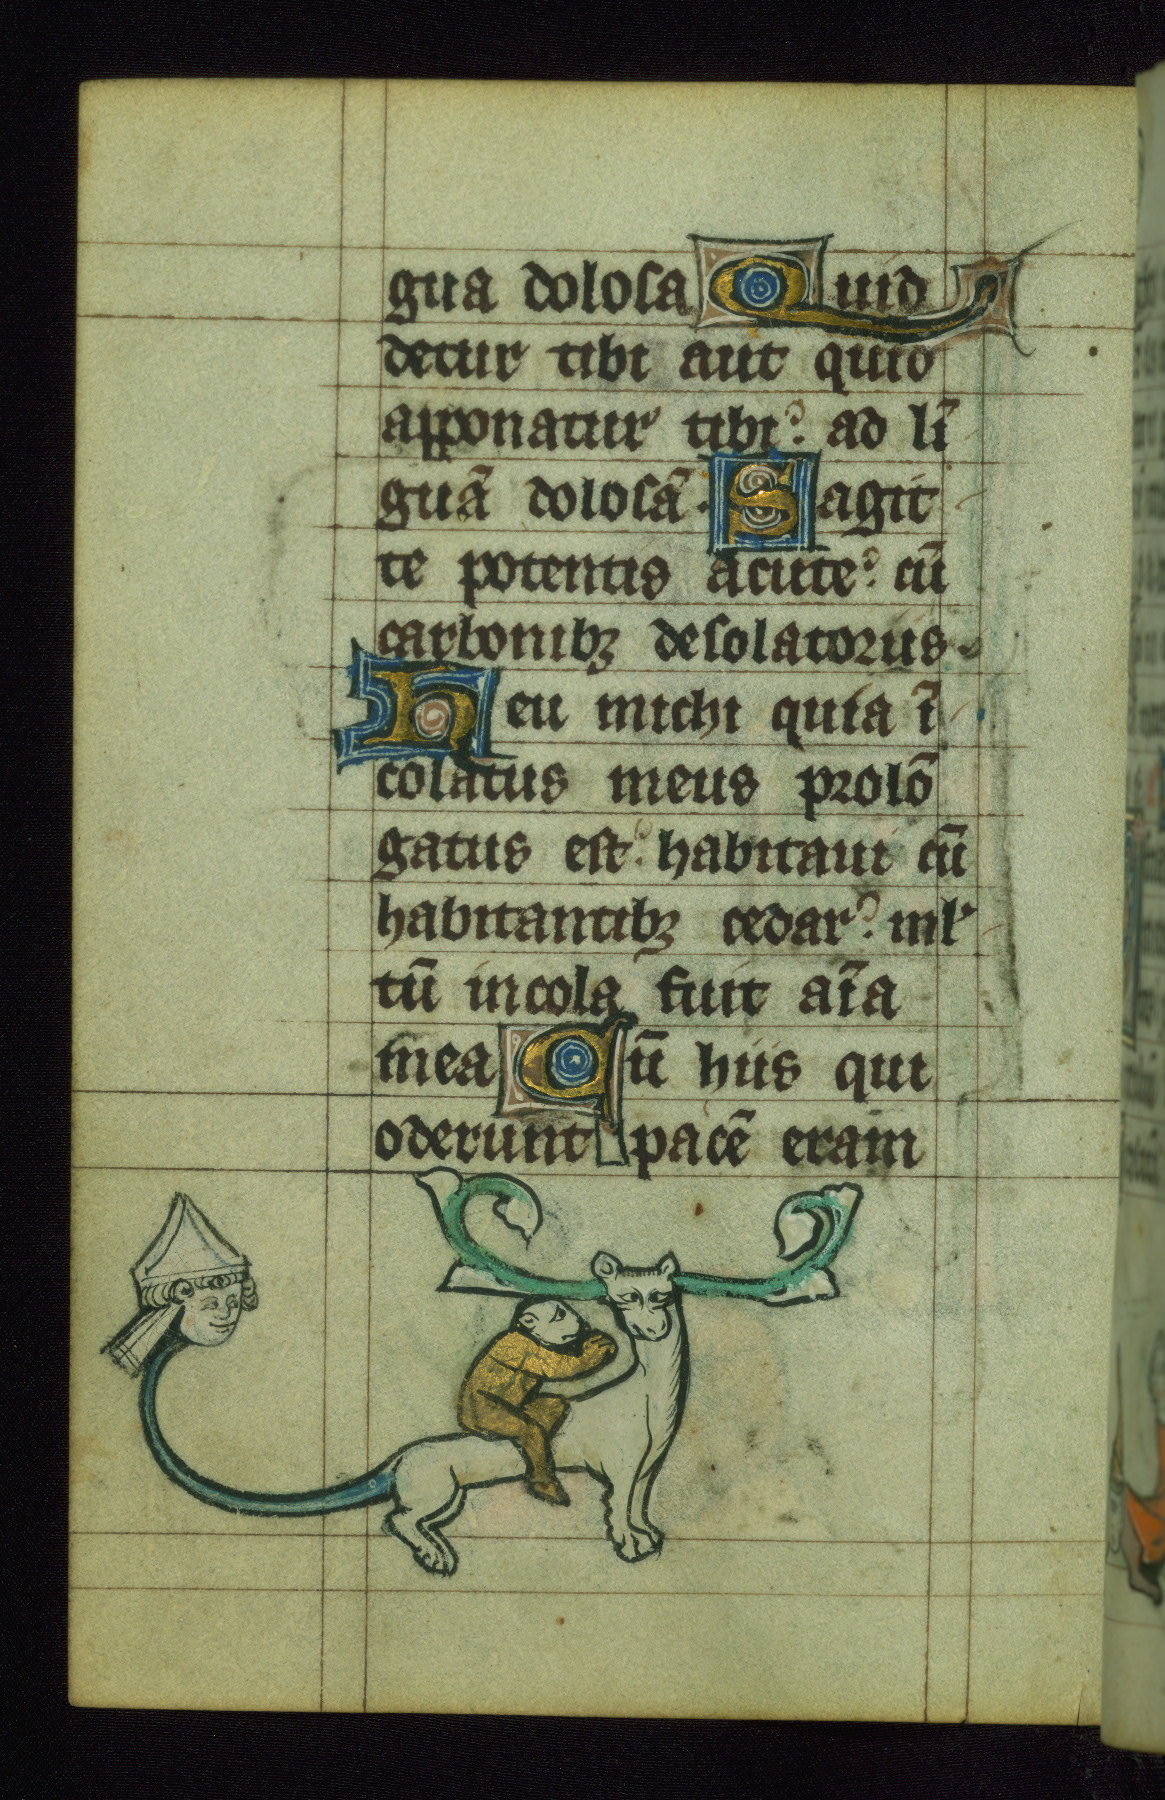 gua dolosa Quid
detur tibi aut quid
apponatur tibi? ad lī
guā dolosā. Sagit
te potentis acute? cū
carbonibꝫ desolatoriis.
Heu michi quia ī
colatus meus prolō
gatus est? habitaui cū
habitantibꝫ cedar? ml'
tū incola fuit aīa
mea Cū hiis qui
oderunt pacē eram